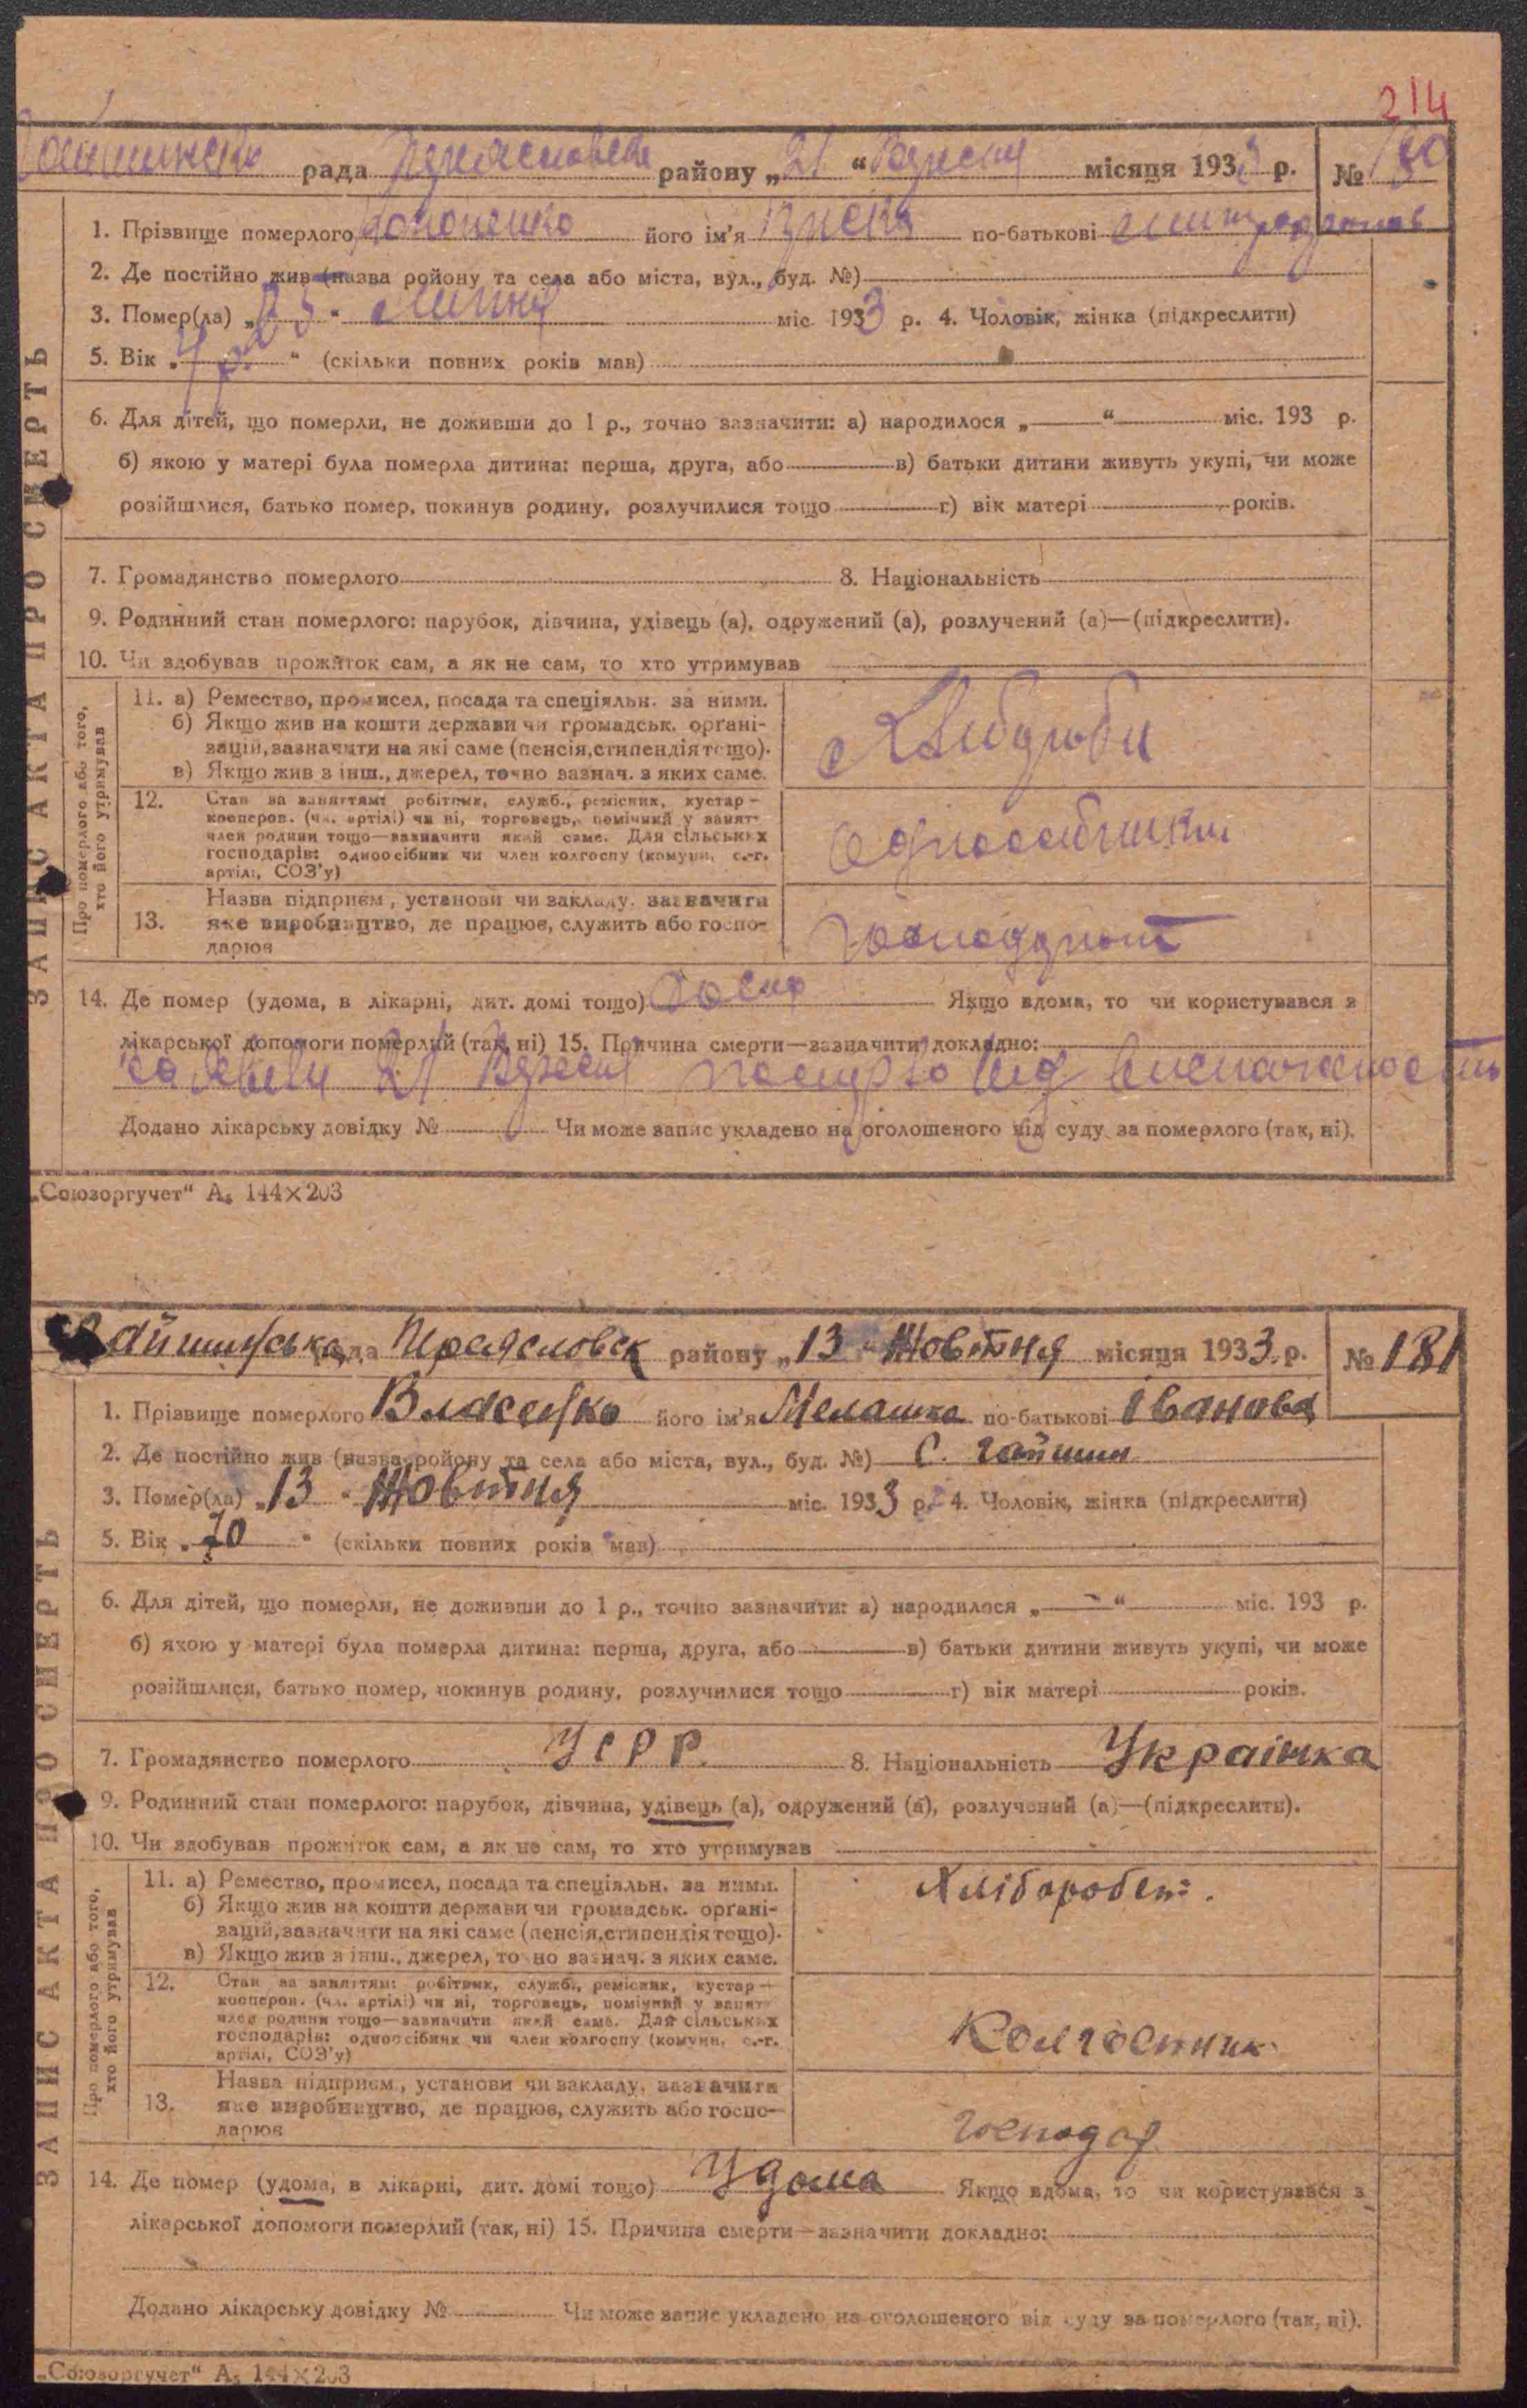 214
рада района „21“ Вересня місяця 1933 р. № 180
1. Прізвище померлого Кононенко його ім'я по-батькові
2. Де постійно жив (назва ройону та села або міста, вул., буд. №)
3. Помер(ла) „ “ міс. 1933 р. 4. Чоловік, жінка (підкреслити)
5. Вік „ “ (скільки повних років мав)
6. Для дітей, що померли, не доживши до 1 р., точно зазначити: а) народилося „ “ міс. 193 р.
б) якою у матері була померла дитина: перша, друга, або в) батьки дитини живуть укупі, чи може
розійшлися, батько помер, покинув родину, розлучилися тощо г) вік матері років.
7. Громадянство померлого 8. Національність
9. Родинний стан померлого: парубок, дівчина, удівець (а), одружений (а), розлучений (а)—(підкреслити).
10. Чи здобував прожиток сам, а як не сам, то хто утримував
ЗАПИС АКТА ПРО СМЕРТЬ
Про померлого або того, хто його утримував
11. а) Ремество, промисел, посада та спеціяльн. за ними.
б) Якщо жив на кошти держави чи громадськ. орґані-
зацій, зазначити на які саме (пенсія, стипендія тощо).
в) Якщо жив з інш., джерел, точно зазнач. з яких саме.
12. Стан за заняттям: робітник, служб., ремісник, кустар—
кооперов. (чл. артілі) чи ні, торговець, помічний у занят-
член родини тощо—зазначити який саме. Для сільських
господарів: одноосібник чи член колгоспу (комуни, с.-г.
артілі, СОЗ'у)
13. Назва підприєм., установи чи закладу, зазначити
яке виробництво, де працює, служить або госпо-
дарює
14. Де помер (удома, в лікарні, дит. домі тощо) Якщо вдома, то чи користувався з
лікарської допомоги померлий (так, ні) 15. Причина смерти—зазначити докладно:
21 Вересня
Додано лікарську довідку № Чи може запис укладено на оголошеного від суду за померлого (так, ні).
„Союзоргучет“ А₅ 144×203
рада района „13“ Жовтня місяця 1933 р. № 181
1. Прізвище померлого Власенко його ім'я Мелашка по-батькові Іванова
2. Де постійно жив (назва ройону та села або міста, вул., буд. №) С. Гайшин
3. Помер(ла) „13“ Жовтня міс. 1933 р. 4. Чоловік, жінка (підкреслити)
5. Вік „70“ (скільки повних років мав)
6. Для дітей, що померли, не доживши до 1 р., точно зазначити: а) народилося „ “ міс. 193 р.
б) якою у матері була померла дитина: перша, друга, або в) батьки дитини живуть укупі, чи може
розійшлися, батько помер, покинув родину, розлучилися тощо г) вік матері років.
7. Громадянство померлого УСРР. 8. Національність Українка
9. Родинний стан померлого: парубок, дівчина, удівець (а), одружений (а), розлучений (а)—(підкреслити).
10. Чи здобував прожиток сам, а як не сам, то хто утримував
ЗАПИС АКТА ПРО СМЕРТЬ
Про померлого або того, хто його утримував
11. а) Ремество, промисел, посада та спеціяльн. за ними.
б) Якщо жив на кошти держави чи громадськ. орґані-
зацій, зазначити на які саме (пенсія, стипендія тощо).
в) Якщо жив з інш., джерел, точно зазнач. з яких саме.
12. Стан за заняттям: робітник, служб., ремісник, кустар—
кооперов. (чл. артілі) чи ні, торговець, помічний у занят-
член родини тощо—зазначити який саме. Для сільських
господарів: одноосібник чи член колгоспу (комуни, с.-г.
артілі, СОЗ'у)
Колгоспник
13. Назва підприєм., установи чи закладу, зазначити
яке виробництво, де працює, служить або госпо-
дарює
14. Де помер (удома, в лікарні, дит. домі тощо) Удома Якщо вдома, то чи користувався з
лікарської допомоги померлий (так, ні) 15. Причина смерти—зазначити докладно:
Додано лікарську довідку № Чи може запис укладено на оголошеного від суду за померлого (так, ні).
„Союзоргучет“ А₅ 144×203